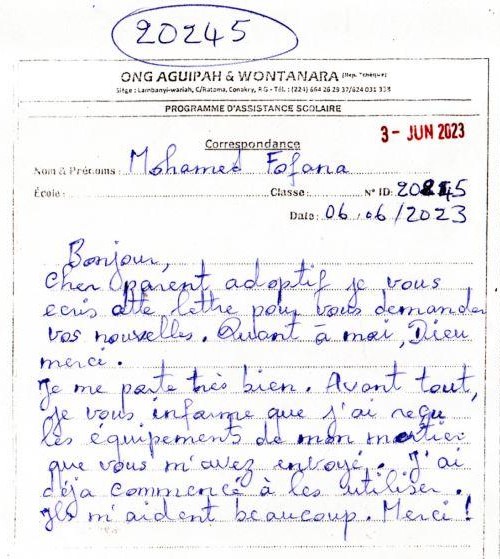 20245
ONG AGUIPAH & WONTANARA (Rep. Tchèque)
Siège : Lambanyi-wariah, C/Ratoma, Conakry, RG - Tél. : (224) 664 26 29 37/624 031 338
PROGRAMME D'ASSISTANCE SCOLAIRE
3- JUN 2023
Correspondance
Nom & Prénoms : Mohamed Fofana
École : Classe : N° ID: 20245
Date : 06/06/2023
Bonjour,
Cher parent adoptif je vous
ecris cette lettre pour vous demander
vos nouvelles. Quant à moi, Dieu
merci.
Je me porte très bien. Avant tout,
je vous informe que j'ai reçu
les équipements de mon métier
que vous m'avez envoyé. J'ai
déja commencé à les utiliser.
Ils m'aident beaucoup. Merci !